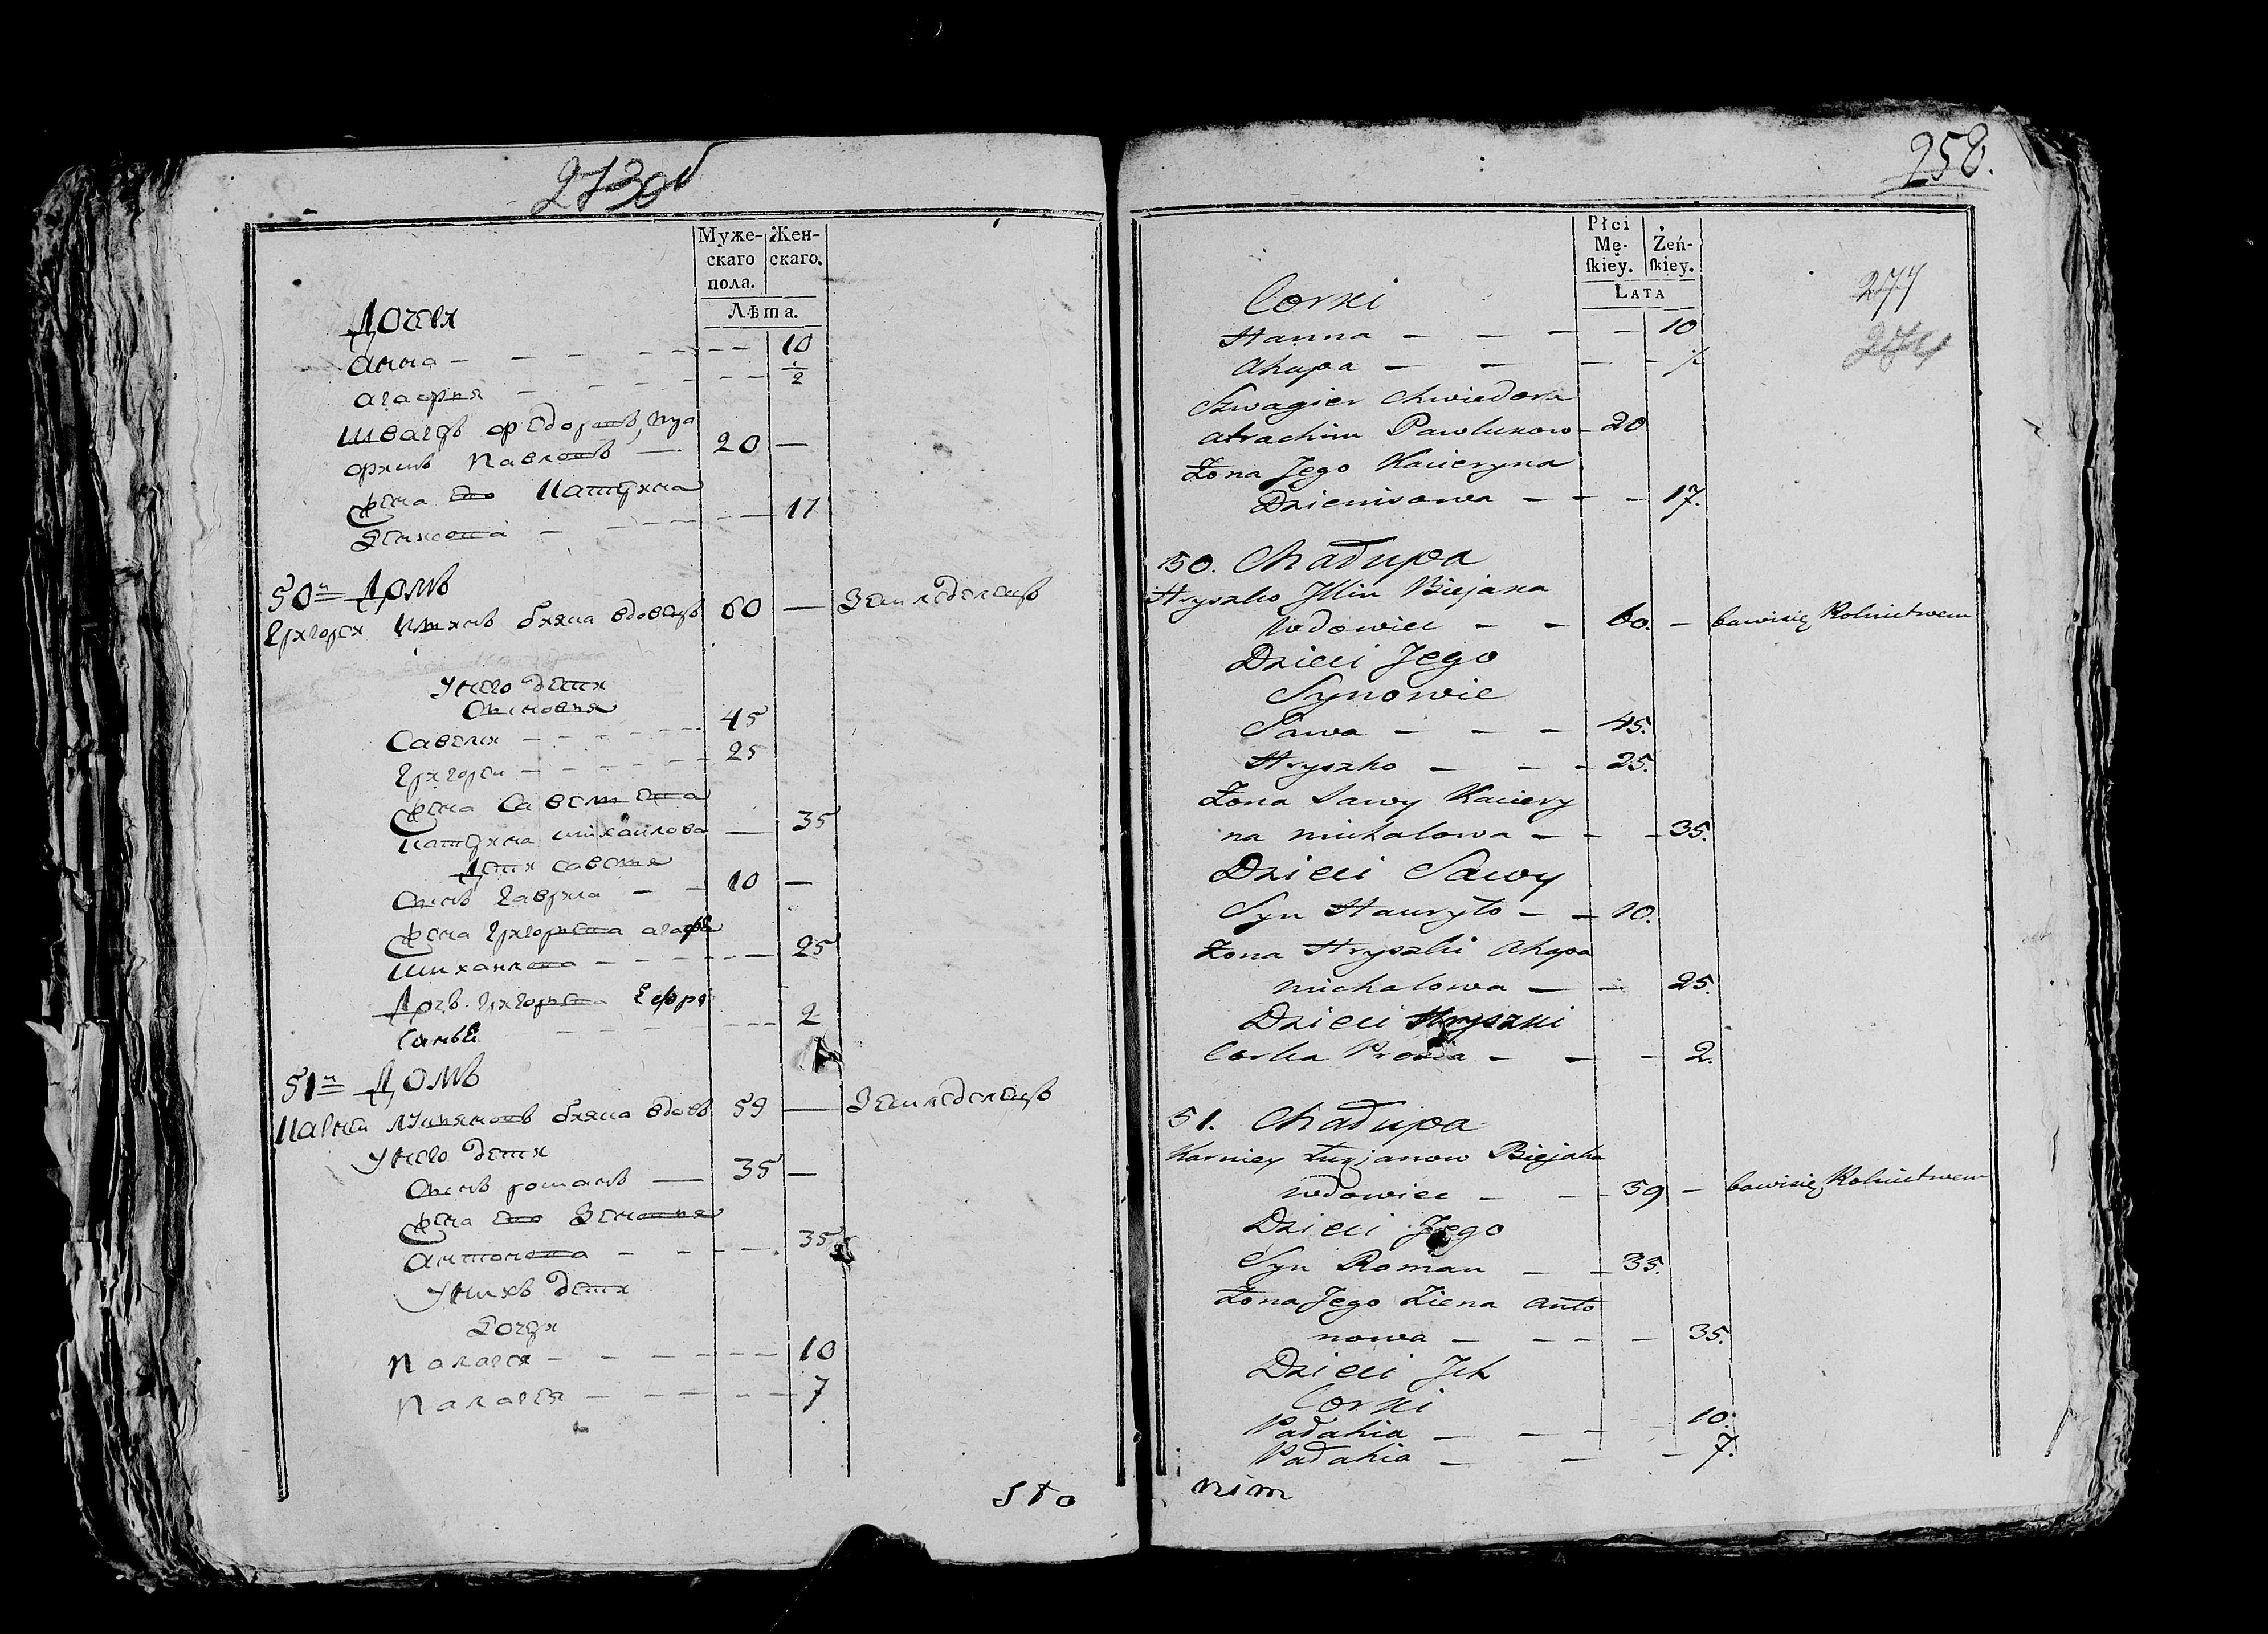 273об
Муже-
скаго
пола.
Жен-
скаго.
Лѣта.
Дочери
Анна - - - 10
Агафия - - - 1/2
Шваеръ Федоровъ, тро
фимъ Павловъ — 20 —
Жена его Катерина
Денисова - - - 17
50й Домъ
Григорей Илинъ бияка вдовецъ 60 — Земледелецъ
У него дети
Сыновья
Савелий - - - 45
Григорей - - - 25
Жена Савельева
Катерина Михайлова — 35
Дети Савелия
Сынъ Гаврила - - 10 —
Жена Григорьева агафья
Михайлова - - - 25
Дочь Григорьева Ефро
синья - - - 2
51й Домъ
Карней Лукьяновъ бияка вдовецъ 59 — Земледелецъ
У него дети
Сынъ романъ — 35 —
Жена его Зеновия
Антонова - - - 35
У нихъ дети
Дочери
Палагея - - - 10
Палагея - - - 7
Sto
258.
Płci
Mę-
skiey.
Żeń-
skiey.
LATA
277
274
Corki
Hanna — — — 10
Ahapa — — — ½
Szwagier Chwiedora
Atrachim Pawlukow — 20
Żona Jego Kacieryna
Dzienisowa — — 17.
50. Chałupa
Hryszko Jllin Biejaka
wdowiec — — 60. — bawi się Rolnictwem
Dzieci Jego
Synowie
Sawa — — — 45.
Hryszko — — — 25.
Żona Sawy Kaciery
na Michalowa — — 35.
Dzieci Sawy
Syn Hauryło — — 10.
Żona Hryszki Ahapa
Michalowa — — 25.
Dzieci Hryszki
Corka Prosia — — — 2.
51. Chałupa
Karniey Łukjanow Biejaka
wdowiec — — 59 — bawi się Rolnictwem
Dzieci Jego
Syn Roman — — 35.
Żona Jego Ziena Anto
nowa — — — 35.
Dzieci Jch
Corki
Pałahia — — — 10.
Pałahia — — — 7.
nim